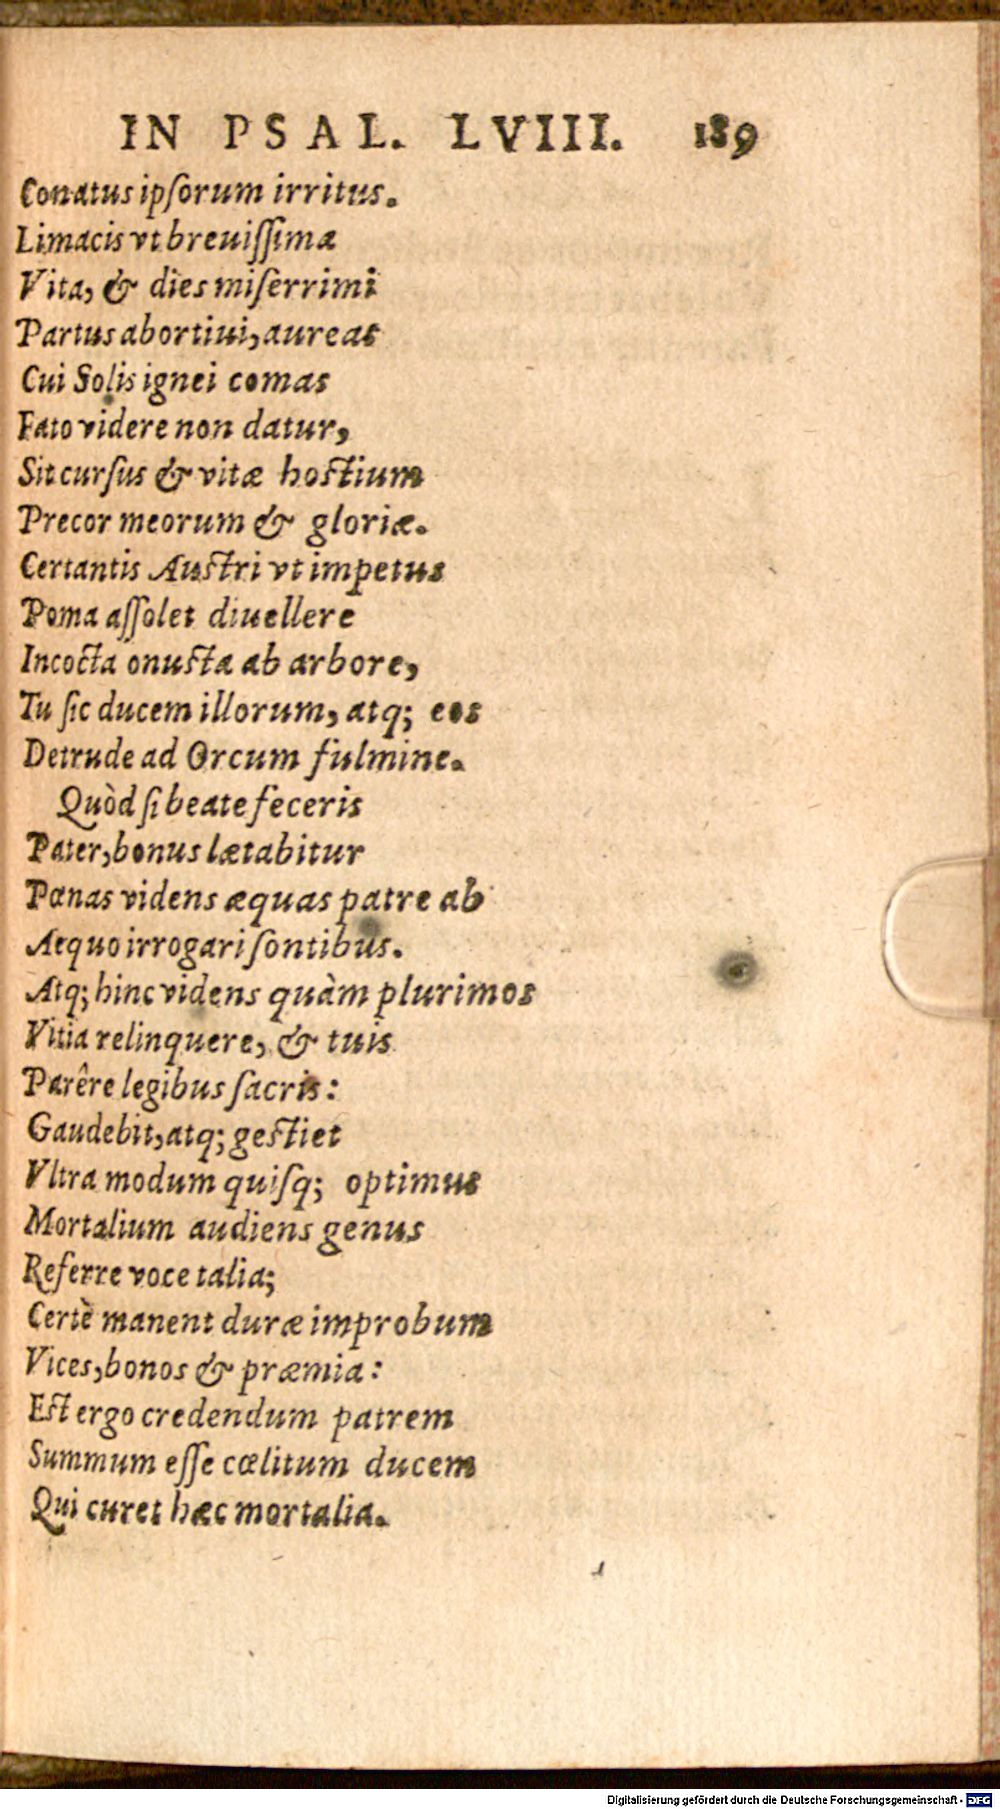 IN PSAL. LVIII. 189
Conatus ipſorum irritus.
Limacis vt breuiſſima
Vita, & dies miſerrimi
Partus abortiui, aureas
Cui Solis ignei comas
Fato videre non datur,
Sit curſus & vitæ hostium
Precor meorum & gloriæ.
Certantis Austri vt impetus
Poma aſſolet diuellere
Incocta onusta ab arbore,
Tu ſic ducem illorum, atq; eos
Detrude ad Orcum fulmine.
Quòd ſi beate feceris
Pater, bonus lætabitur
Pœnas videns æquas patre ab
Aequo irrogari ſontibus.
Atq; hinc videns quàm plurimos
Vitia relinquere, & tuis
Parêre legibus ſacris:
Gaudebit, atq; gestiet
Vltra modum quiſq; optimus
Mortalium audiens genus
Referre voce talia;
Certè manent duræ improbum
Vices, bonos & præmia:
Est ergo credendum patrem
Summum eſſe cœlitum ducem
Qui curet hæc mortalia.
Digitalisierung gefördert durch die Deutsche Forschungsgemeinschaft - DFG